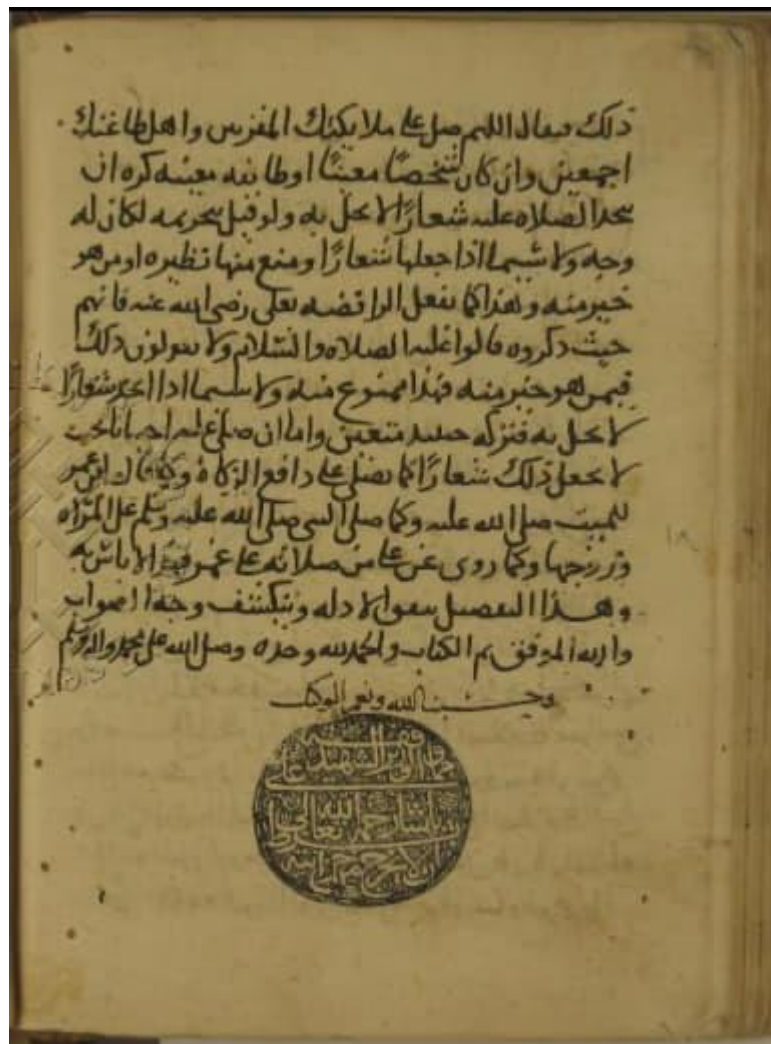 ذلك فيقال اللهم صل على ملائكتك المقربين واهل طاعتك
اجمعين وان كان شخصًا معينًا او طائفه معينه كره ان
يتخذ الصلاه عليه شعارًا لا يخل به ولو قيل بتحريمه لكان له
وجه ولا سيما اذا جعلها شعارًا ومنع منها نظيره او من هو
خير منه وهذا كما يفعل الرافضه بعلي رضي الله عنه فانهم
حيث ذكروه قالوا عليه الصلاه والسلام ولا يقولون ذلك
فيمن هو خير منه فهذا ممنوع منه ولا سيما اذا اتخذ شعارًا
لا يخل به فتركه حينيد متعين واما ان صلى عليه احيانا بحيث
لا يجعل ذلك شعارًا كما يصلى على دافع الزكاة وكما قال ابن عمر
للميت صلى الله عليه وكما صلى النبي صلى الله عليه وسلم على المراه
وزوجها وكما روي عن علي من صلاته على عمر فهذا لا باس به
وهذا التفصيل تتفق الادله وينكشف وجه الصواب
والله الموفق تم الكتاب والحمد لله وحده وصلى الله على محمد واله وسلم
وحسبنا الله ونعم الوكيل
١٨